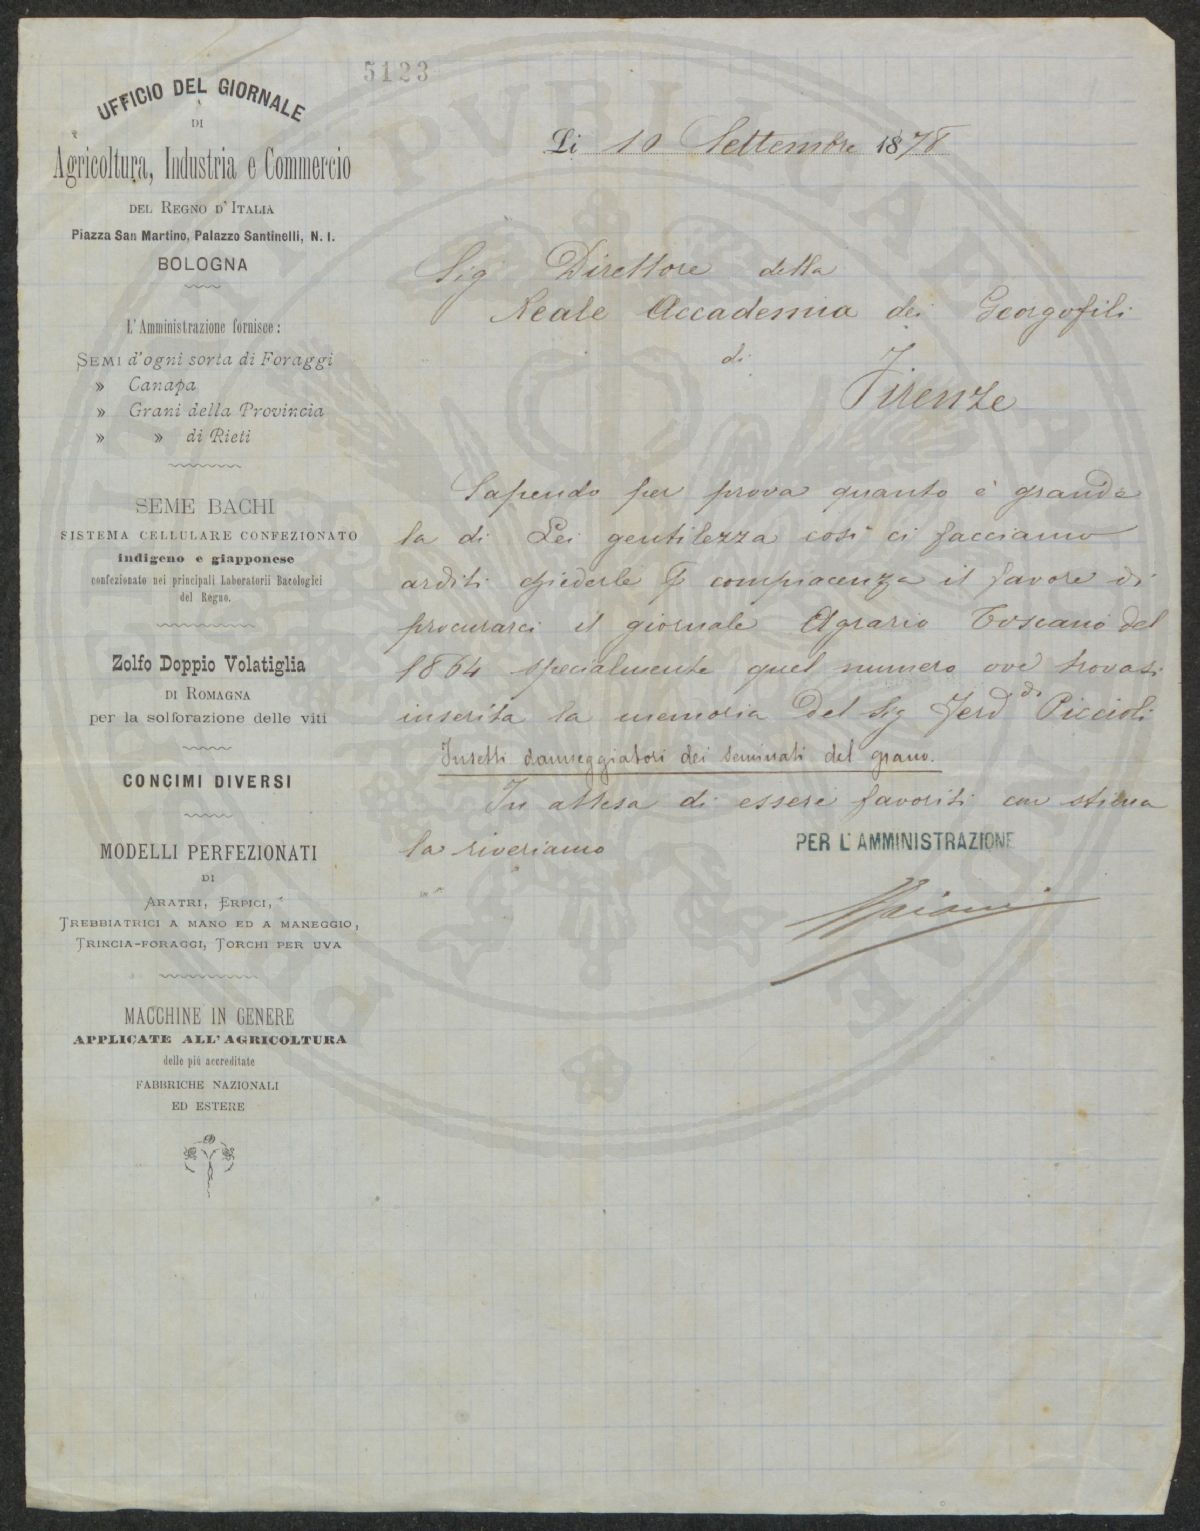 5123
UFFICIO DEL GIORNALE
DI
Agricoltura, Industria e Commercio
DEL REGNO D'ITALIA
Piazza San Martino, Palazzo Santinelli, N. 1.
BOLOGNA
L'Amministrazione fornisce:
SEMI d'ogni sorta di Foraggi
» Canapa
» Grani della Provincia
» » di Rieti
SEME BACHI
SISTEMA CELLULARE CONFEZIONATO
indigeno e giapponese
confezionato nei principali Laboratorii Bacologici
del Regno.
Zolfo Doppio Volatiglia
DI ROMAGNA
per la solforazione delle viti
CONCIMI DIVERSI
MODELLI PERFEZIONATI
DI
ARATRI, ERPICI,
TREBBIATRICI A MANO ED A MANEGGIO,
TRINCIA-FORAGGI, TORCHI PER UVA
MACCHINE IN GENERE
APPLICATE ALL'AGRICOLTURA
delle più accreditate
FABBRICHE NAZIONALI
ED ESTERE
Li 10 Settembre 1878
Sig Direttore della
Reale Accademia dei Georgofili
di
Firenze
Sapendo per prova quanto è grande
la di Lei gentilezza così ci facciamo
arditi chiederle compiacenza il favore di
procurarci il giornale Agrario Toscano del
1864 specialmente quel numero ove trovasi
inserita la memoria del Sig Ferd.di Piccioli
Insetti danneggiatori dei seminati del grano.
In attesa di essere favoriti con stima
la riveriamo
PER L'AMMINISTRAZIONE